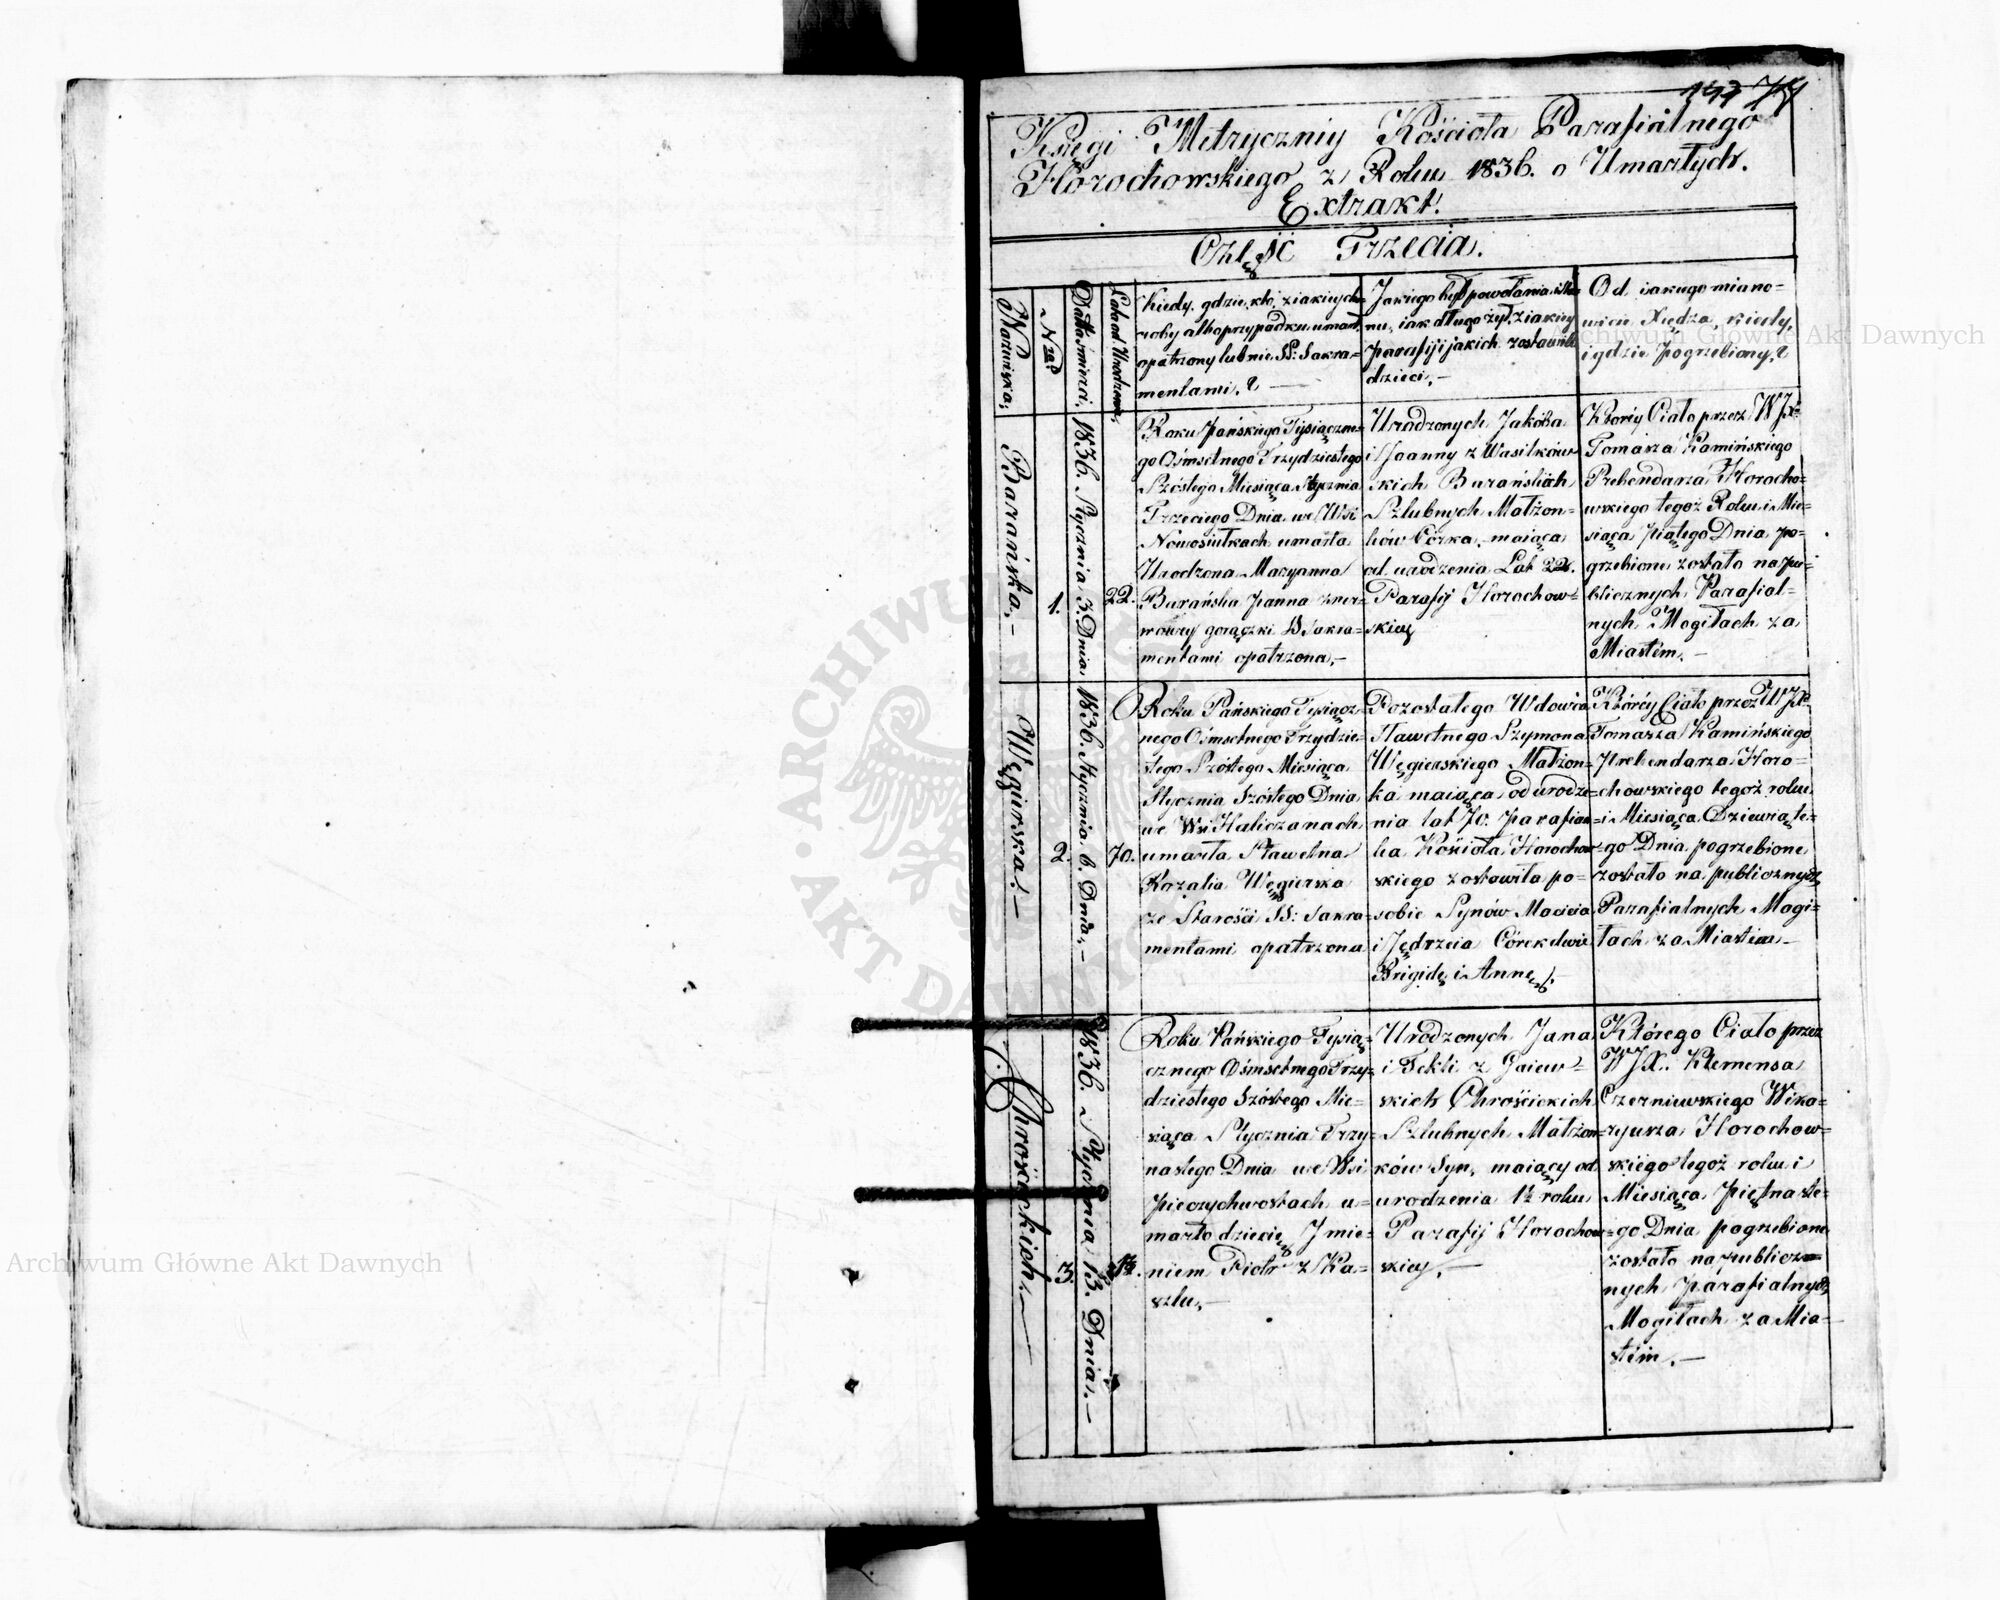 Księgi Metryczniy Kościoła Parafialnego
Horochowskiego z Roku 1836. o Umarłych.
Extrakt.
Część Trzecia.
Nazwiska.
N.
Data śmierci.
Lata od Urodzenia.
Kiedy, gdzie, kto, z iakiey cho=
roby albo przypadku umarł,
opatrzony lub nie SS: Sakra=
mentami. —
Jakiego był powołania i Sta=
nu, iak długo żył, z iakiey
parafiji jakich zostawił
dzieci. —
Od iakiego miano=
wicie Xiędza, kiedy,
i gdzie pogrzebiony,
Barańska. —
1.
1836. Stycznia 3. Dnia
22.
Roku Pańskiego Tysiączne=
go Ośmsetnego Trzydziestego
Szóstego Miesiąca Stycznia
Trzeciego Dnia we Wsi
Nowosiułkach umarła
Urodzona Maryanna
Barańska panna z ner=
wowey gorączki SS Sakra=
mentami opatrzona. —
Urodzonych Jakóba
i Joanny z Wasilków=
skich Barańskich
Szlubnych Małżon=
ków Córka, maiąca
od urodzenia Lat 22.
Parafij Horochow=
skiey
Którey Ciało przez WJX
Tomasza Kamińskiego
Prebendarza Horocho=
wskiego tegoż Roku i Mie=
siąca piątego Dnia po=
grzebione zostało na pu=
blicznych Parafial=
nych Mogiłach za
Miastem. —
Węgierska. —
2.
1836. Stycznia 6. Dnia. —
70.
Roku Pańskiego Tysiącz=
nego Ośmsetnego Trzydzie=
stego Szóstego Miesiąca
Stycznia Szóstego Dnia
we Wsi Haliczanach
umarła Sławetna
Rozalia Węgierska
ze Starości SS: Sakra=
mentami opatrzona
Pozostałego Wdowca
Sławetnego Szymona
Węgierskiego Małżon=
ka maiąca od urodze=
nia lat 70. parafian=
ka Kościoła Horochow=
skiego zostawiła po=
sobie Synów Macieia
i Jędrzeia Córek dwie
Brigidę i Annę. —
Którey Ciało przez WJX
Tomasza Kamińskiego
prebendarza Horo=
chowskiego tegoż roku
i Miesiąca Dziewiąte=
go Dnia pogrzebione
zostało na publicznych
Parafialnych Mogi=
łach za Miastem —
Chrościckich. —
3.
1836. Stycznia 13. Dnia. —
1½.
Roku Pańskiego Tysią=
cznego Ośmsetnego Trzy=
dziestego Szóstego Mie=
siąca Stycznia Trzy=
nastego Dnia we Wsi
pieczychwostach u=
marło dziecię Jmie=
niem Piotr z Ka=
szlu. —
Urodzonych Jana
i Tekli z Gaiew=
skich Chrościckich
Szlubnych Małżon=
ków Syn, maiący od
urodzenia 1½ roku
Parafij Horochow=
skiey. —
Którego Ciało przez
WJX. Klemensa
Czerniewskiego Wika=
ryusza Horochow=
skiego tegoż roku i
Miesiąca piętnaste=
go Dnia pogrzebione
zostało na publicz=
nych parafialnych
Mogiłach za Mia=
stem. —
ARCHIWUM GŁÓWNE AKT DAWNYCH
Archiwum Główne Akt Dawnych
Archiwum Główne Akt Dawnych